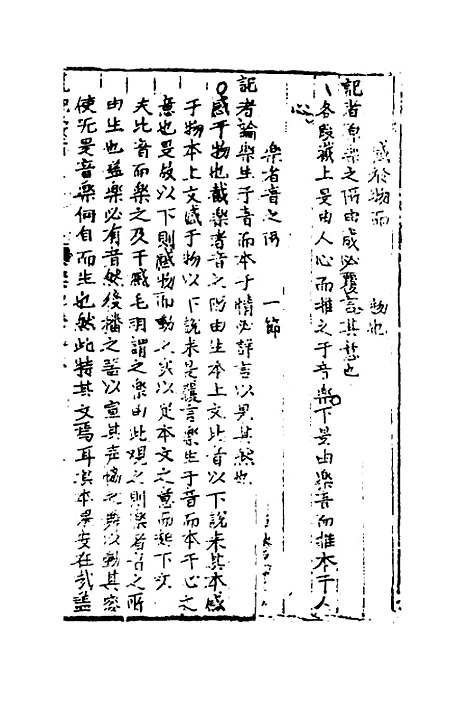 感於物而　　　動也
記者論樂之所由成必覆言其意也
各段截上是由人心而推之于音樂下是由樂音而推本于人
心
樂者音之所　　一節
記者論樂生于音而本于情必詳言以異其然也
感于物也截樂者音之所由生本上文比音以下說来其本感
于物本上文感于物以下說来是覆言樂生于音而本于心之
意也是故以下則感物而動之以足本文之意而起下文
夫比音而樂之及干戚毛羽謂之樂由此观之則樂者音之所
由生也盖樂必有音然後播之器以宣其声協之舞以動其容
使无是音樂何自而生也然此特其文焉耳其本果安在哉盖